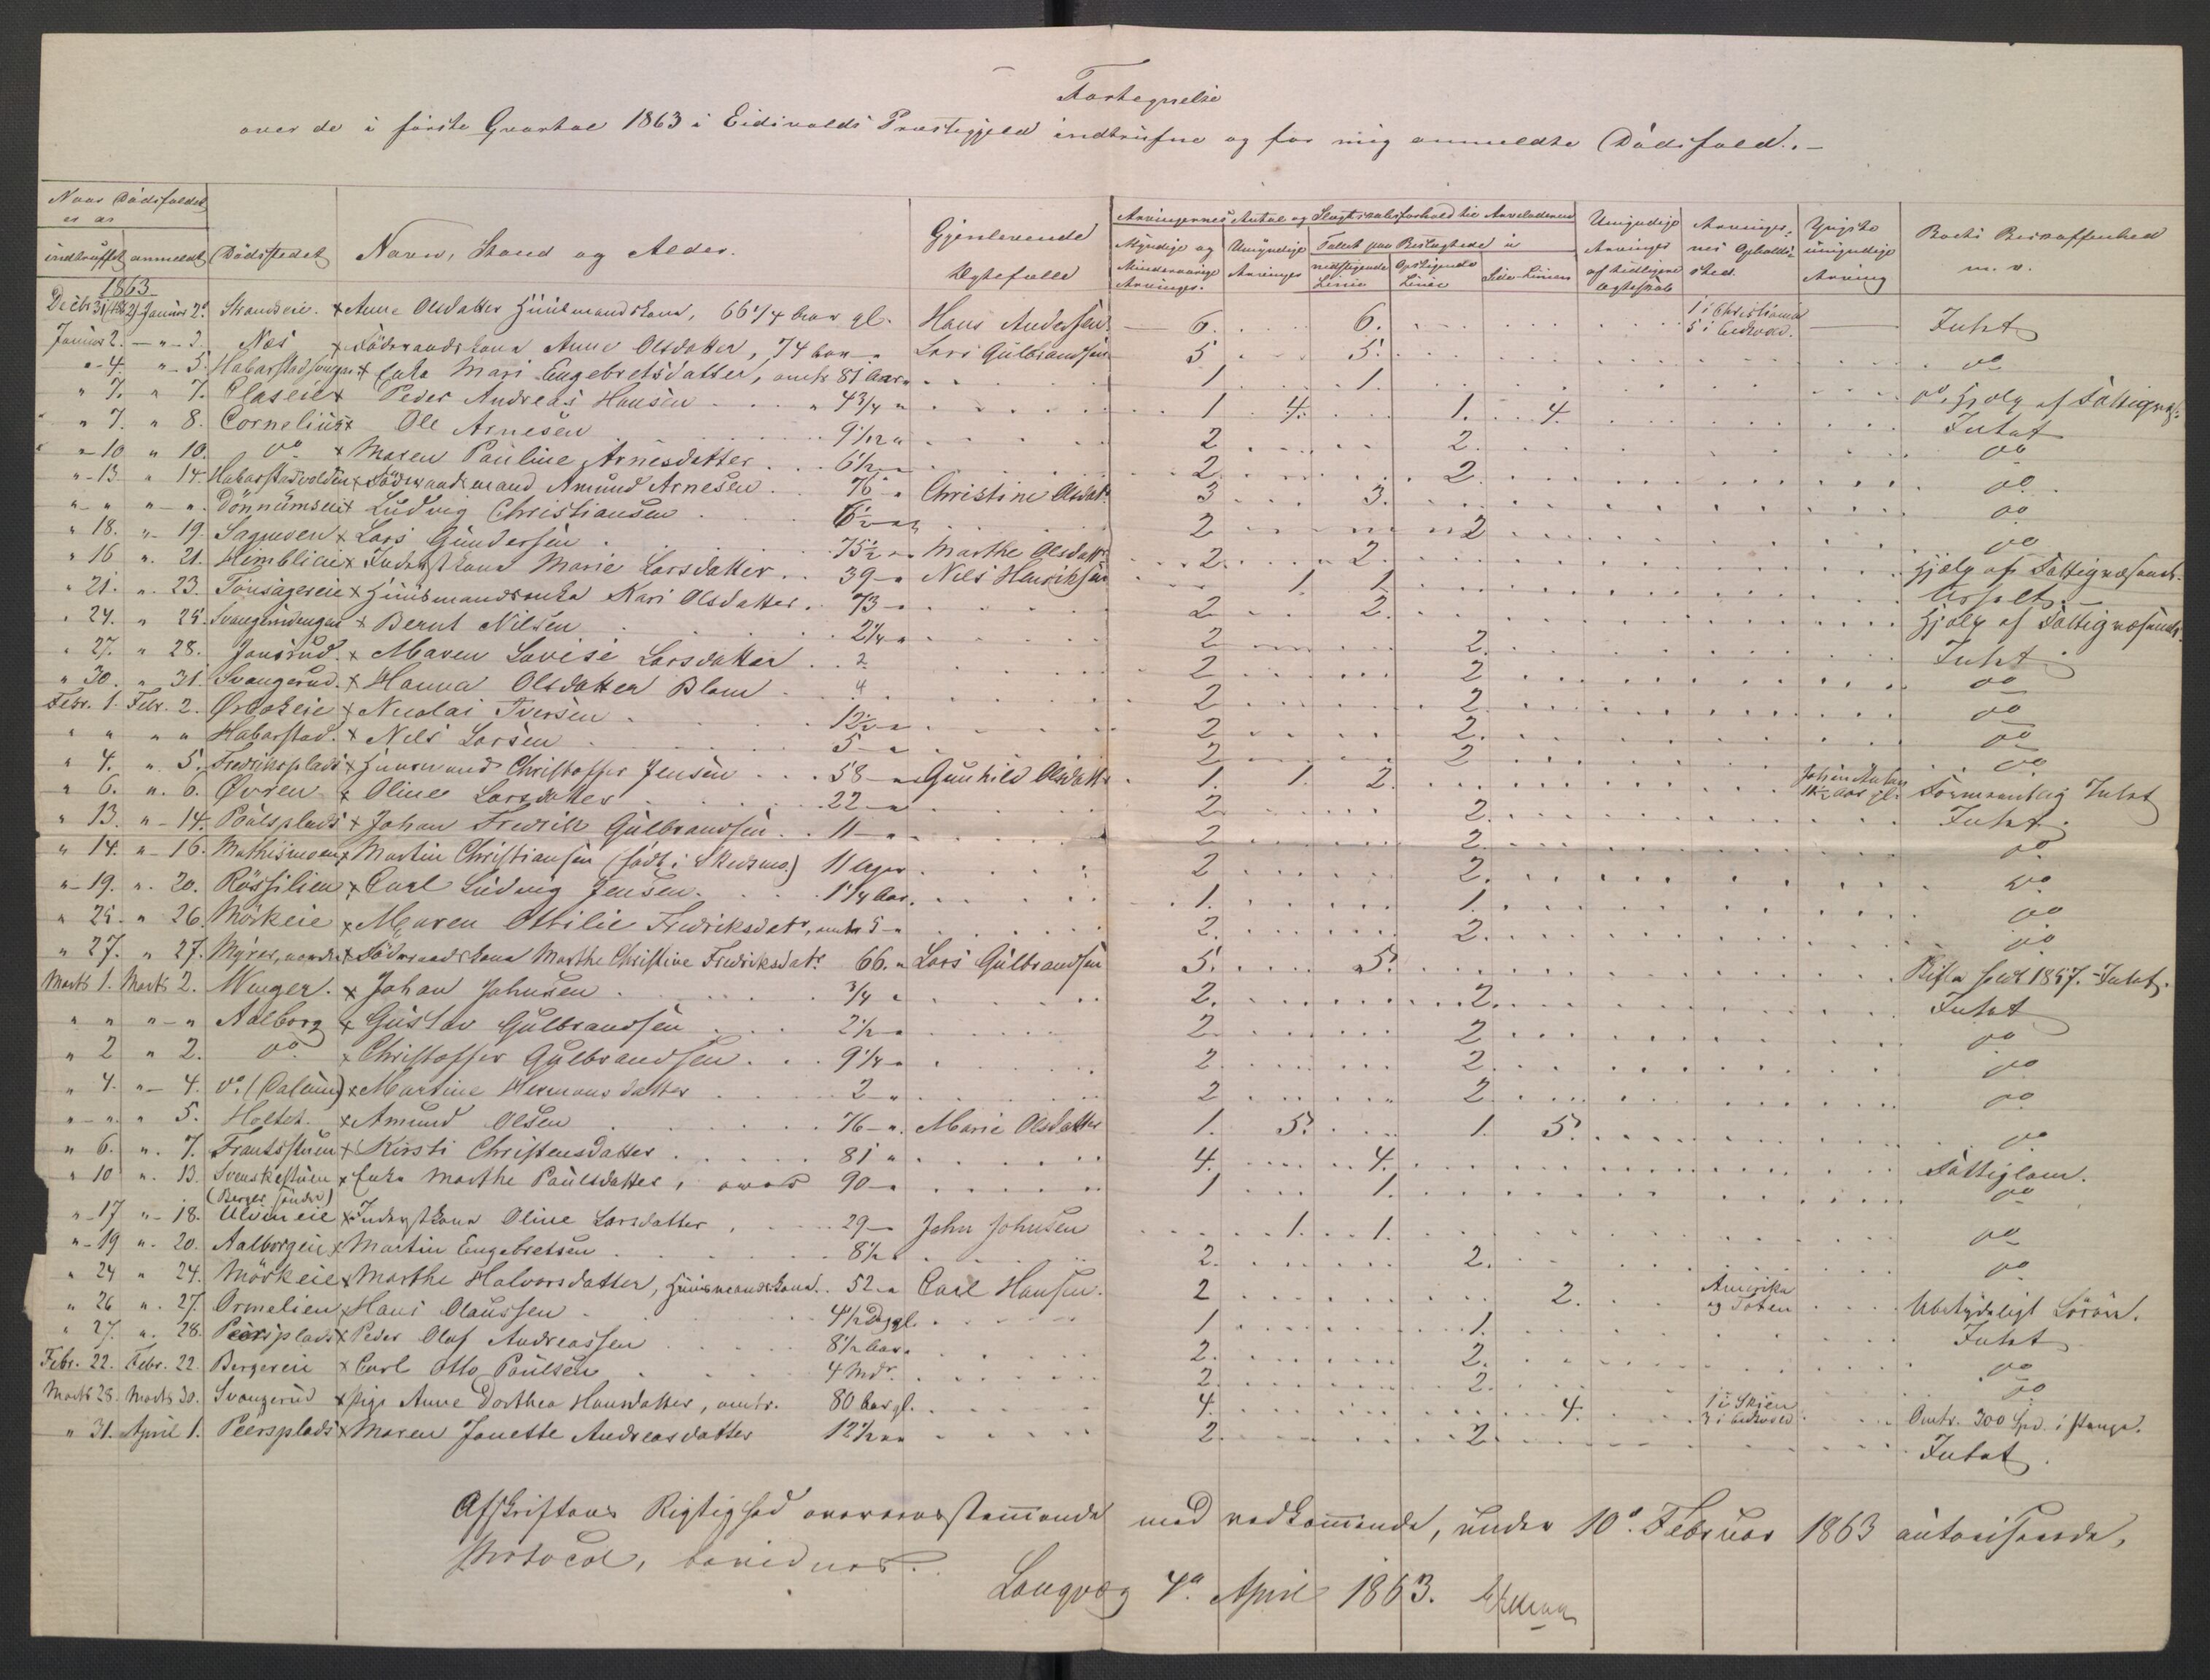 Fortegnelse
over de i første Qvartal 1863 i Eidsvolds Præstegjeld indtrufne og for mig anmeldte Dødsfald.—
Naar Dødsfaldet er | Dødsstedet | Navn, Stand og Alder. | Gjenlevende Ægtefælle | Arvingernes Antal og Slægtskabsforhold til Arveladeren | Umyndige Arvinger af tidligere Ægteskab | Arvingernes Opholdssted. | Yngste umyndige Arving | Boets Beskaffenhed m. v.
indtruffet | anmeldt | Myndige og Mindreaarige Arvinger. | Umyndige Arvinger | Tallet paa Beslægtede i nedstigende Linie | Opstigende Linie | Side-Linien
1863
Decbr 31 (1862) | Januar 2. | Strandeie. | x Anne Olsdatter Huusmandskone, 66 1/4 Aar gl. | Hans Andersen | 6. | 6. | 1 i Christiania 5 i Eidsvold. | — | Intet
Januar 2. | " 2. | Næs | x Föderaadskone Anne Olsdatter, 74 Aar " | Lars Gulbrandsen | 5 | 5. | do
" 4. | " 5. | x Enke Mari Engebretsdatter, omtr. 81 Aar " | 1 | 1. | do, Hjelp af Fattigv.
" 7. | " 7. | Claseie | x Peder Andreas Hansen | " 4 3/4 " | 1 | 4. | 1. | 4. | Intet
" 7. | " 8. | Cornelius | x Ole Arnesen | 9 1/12 " | 2 | 2. | do
" 10 | " 10. | do | x Maren Pauline Arnesdatter | 6 1/2 " | 2. | 2. | do
" 13. | " 14. | Habarstadvolden | x Föderaadsmand Amund Arnesen | 76 " | Christine Olsdatr | 3 | 3. | do
" " | " " | Dönnumseie | x Ludvig Christiansen | 6 1/2 " | 2 | 2 | do
" 18. | " 19. | Sagmoen | x Lars Gundersen | 75 1/2 " | Marthe Olsdatter | 2. | 2. | Hjelp af Fattigvæsenet.
" 16 | " 21. | Himblieie | x Inderstkone Marie Larsdatter | 39 " | Nils Henriksen | 1. | 1.
" 21. | " 23. | Tönsagereie | x Huusmandsenke Kari Olsdatter | 73 " | 2 | 2. | Hjelp af Fattigvæsenet.
" 24. | " 25. | x Bernt Nilsen | 2 1/4 " | 2 | 2. | Intet
" 27. | " 28. | Jonsrud. | x Maren Lovise Larsdatter | 2 | 2 | 2 | do
" 30. | " 31. | Svangerud. | x Hanna Olsdatter Blom | 4 | 2 | 2. | do
Febr. 1. | Febr. 2. | Ørbækeie | x Nicolai Iversen | 12 1/2 " | 2 | 2. | do
" " | " " | Habarstad. | x Nils Larsen | 5 " | 2 | 2 | do
" 4. | " 5. | Fredriksplads | x Huusmand Christoffer Jensen | 58 " | Gunhild Olsdatter | 1. | 1. | 2. | Johan Anton 11 1/2 Aar gl. | Formeentlig Intet
" 6. | " 6. | Øvren | x Oline Larsdatter | 22 " | 2 | 2. | Intet
" 13. | " 14. | Poulsplads | x Johan Fredrik Gulbrandsen | 11 " | 2 | 2. | do
" 14. | " 16. | Mathismoen | x Martin Christiansen (född i Skedsmo) | 11 Uger | 2 | 2. | do
" 19. | " 20. | Røssilien | x Carl Ludvig Jensen | 1 1/4 Aar. | 1. | 1. | do
" 25. | " 26. | Mörkeie | x Maren Othilie Fredriksdatr., omtr. 5 " | 2. | 2. | do
" 27. | " 27. | Myrer, nordre | x Föderaadskone Marthe Christine Fredriksdatr. | 66. " | Lars Gulbrandsen | 5. | 5. | Skifte holdt 1857. Intet.
Marts 1. | Marts 2. | Wenger. | x Johan Johnsen | 3/4 " | 2. | 2. | Intet
" " | " " | Aalborg | x Gustav Gulbrandsen | 2 1/2 " | 2 | 2 | do
" 2 | " 2. | do | x Christoffer Gulbrandsen | 9 1/4 " | 2. | 2. | do
" 4. | " 4. | do. (Dalum) | x Martine Hermansdatter | 2 " | 2 | 2 | do
" " | " 5. | Holtet. | x Amund Olsen | 76 " | Marie Olsdatter | 1. | 5. | 1. | 5. | do
" 6. | " 7. | Frantsstuen | x Kirsti Christensdatter | 81 " | 4. | 4. | Fattiglem.
" 10 | " 13. | Svenskestuen | x Enke Marthe Paulsdatter, over | 90 " | 1 | 1. | do
(Berger söndre)
" 17 | " 18. | Ulvineie | x Inderstkone Oline Larsdatter | 29 " | John Johnsen | 1. | 1. | do
" 19 | " 20. | Aalborgeie | x Martin Engebretsen | 8 1/2 | 2. | 2. | do
" 24 | " 24. | Mörkeie | x Marthe Halvorsdatter, Huusmandskone. | 52 " | Carl Hansen. | 2 | 2. | Amerika og Toten | Ubetydeligt Lösøre.
" 26 | " 27. | Ormelien | x Hans Olaussen | 4 1/2 Dg gl. | 1 | 1. | Intet
" 27. | " 28. | Peersplads | x Peder Olaf Andreassen | 8 1/2 Aar. | 2. | 2. | do
Febr. 22. | Febr. 22. | Bergereie | x Carl Otto Paulsen | 4 Mdr. | 2. | 2. | do
Marts 28. | Marts 30. | Svangerud | x Pige Anne Dorthea Hansdatter, omtr. | 80 Aar gl. | 4. | 4. | 1 i Skien 3 i Eidsvold | Omtr. 300 Spd. i Penge.
" 31. | April 1. | Peersplads | x Maren Janette Andreasdatter | 12 1/2 " | 2 | 2 | Intet.
Afskriftens Rigtighed overeensstemmende med vedkommende, under 10de Februar 1863 autoriserede,
Protocol, bevidnes.
Langvæg 4de April 1863.